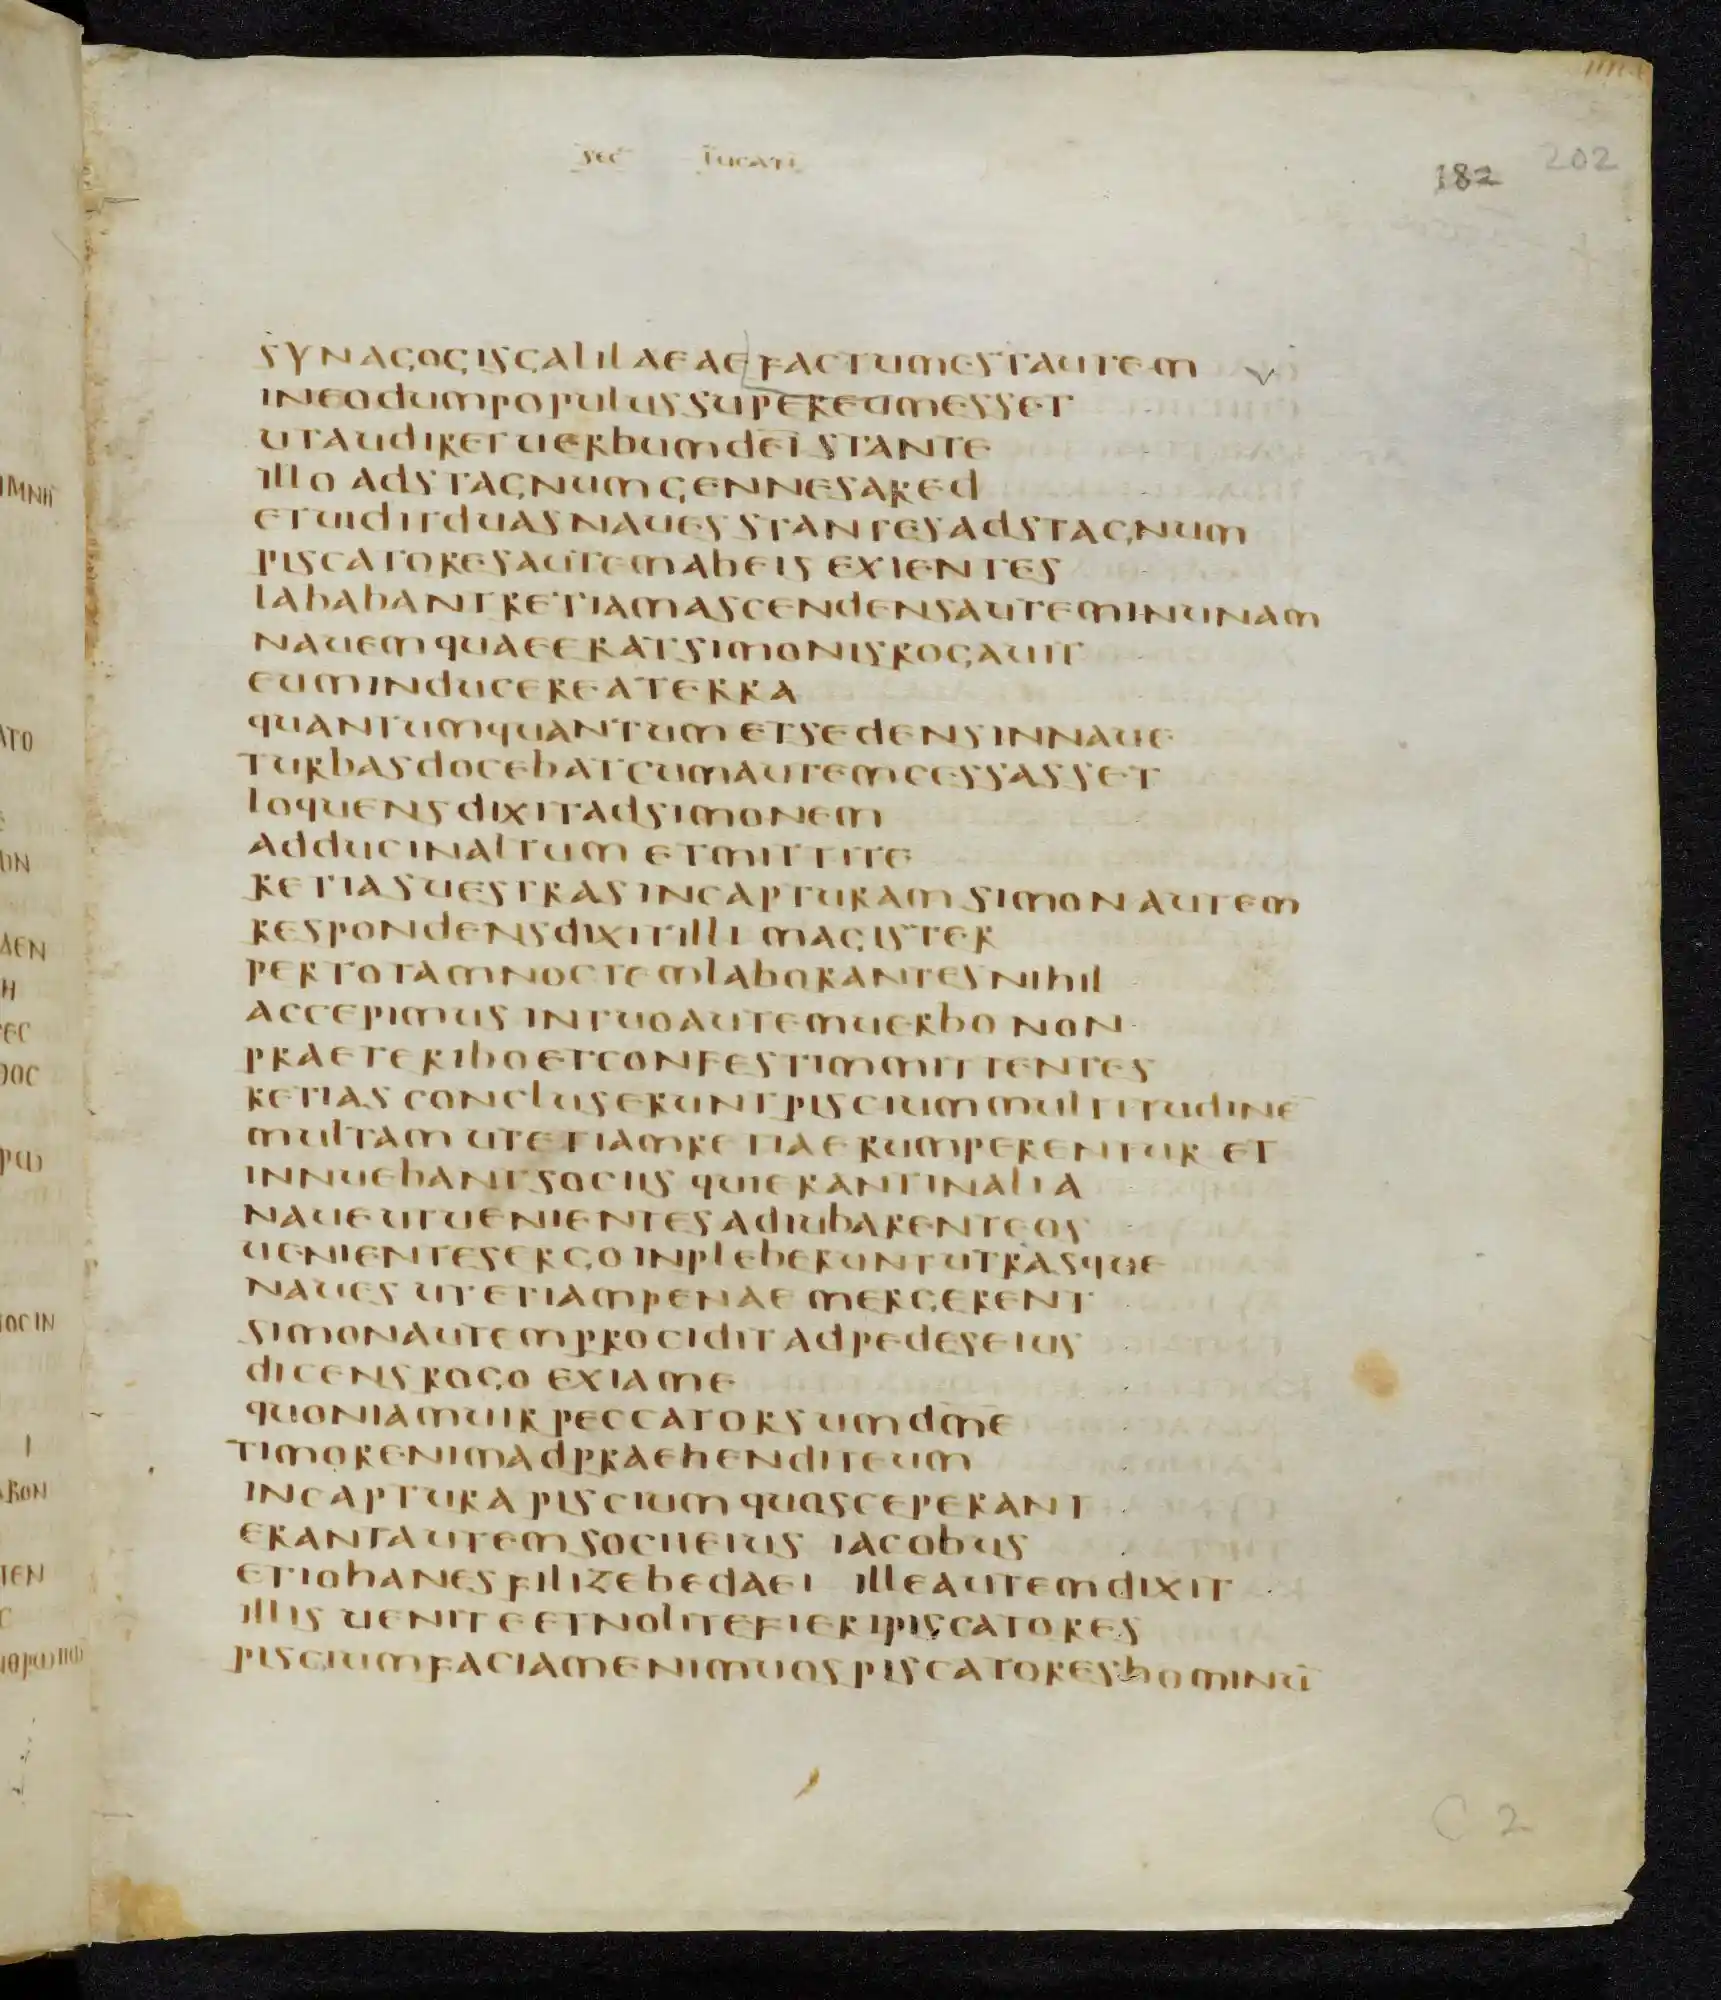 sec lucan
182 202
SYNAGOGIS GALILAEAE FACTUM EST AUTEM V
IN EO DUM POPULUS SUPER EUM ESSET
UT AUDIRET UERBUM DEI STANTE
ILLO AD STAGNUM GENNESARED
ET UIDIT DUAS NAUES STANTES AD STAGNUM
PISCATORES AUTEM AB EIS EXIENTES
LABABANT RETIAM ASCENDENS AUTEM IN UNAM
NAUEM QUAE ERAT SIMONIS ROGAUIT
EUM INDUCERE A TERRA
QUANTUM QUANTUM ET SEDENS IN NAUE
TURBAS DOCEBAT CUM AUTEM CESSASSET
LOQUENS DIXIT AD SIMONEM
ADDUC IN ALTUM ET MITTITE
RETIAS UESTRAS IN CAPTURAM SIMON AUTEM
RESPONDENS DIXIT ILLI MAGISTER
PER TOTAM NOCTEM LABORANTES NIHIL
ACCEPIMUS IN TUO AUTEM UERBO NON
PRAETERIBO ET CONFESTIM MITTENTES
RETIAS CONCLUSERUNT PISCIUM MULTITUDINĒ
MULTAM UT ETIAM RETIAE RUMPERENTUR ET
INNUEBANT SOCIIS QUI ERANT IN ALIA
NAUE UT UENIENTES ADIUBARENT EOS
UENIENTES ERGO INPLEBERUNT UTRASQUE
NAUES UT ETIAM PENAE MERGERENT
SIMON AUTEM PROCIDIT AD PEDES EIUS
DICENS ROGO EXI A ME
QUONIAM UIR PECCATOR SUM DM̄E
TIMOR ENIM ADPRAEHENDIT EUM
IN CAPTURA PISCIUM QUOS CEPERANT
ERANT AUTEM SOCII EIUS IACOBUS
ET IOHANES FILI ZEBEDAEI ILLE AUTEM DIXIT
ILLIS UENITE ET NOLITE FIERI PISCATORES
PISCIUM FACIAM ENIM UOS PISCATORES HOMINŪ
C 2